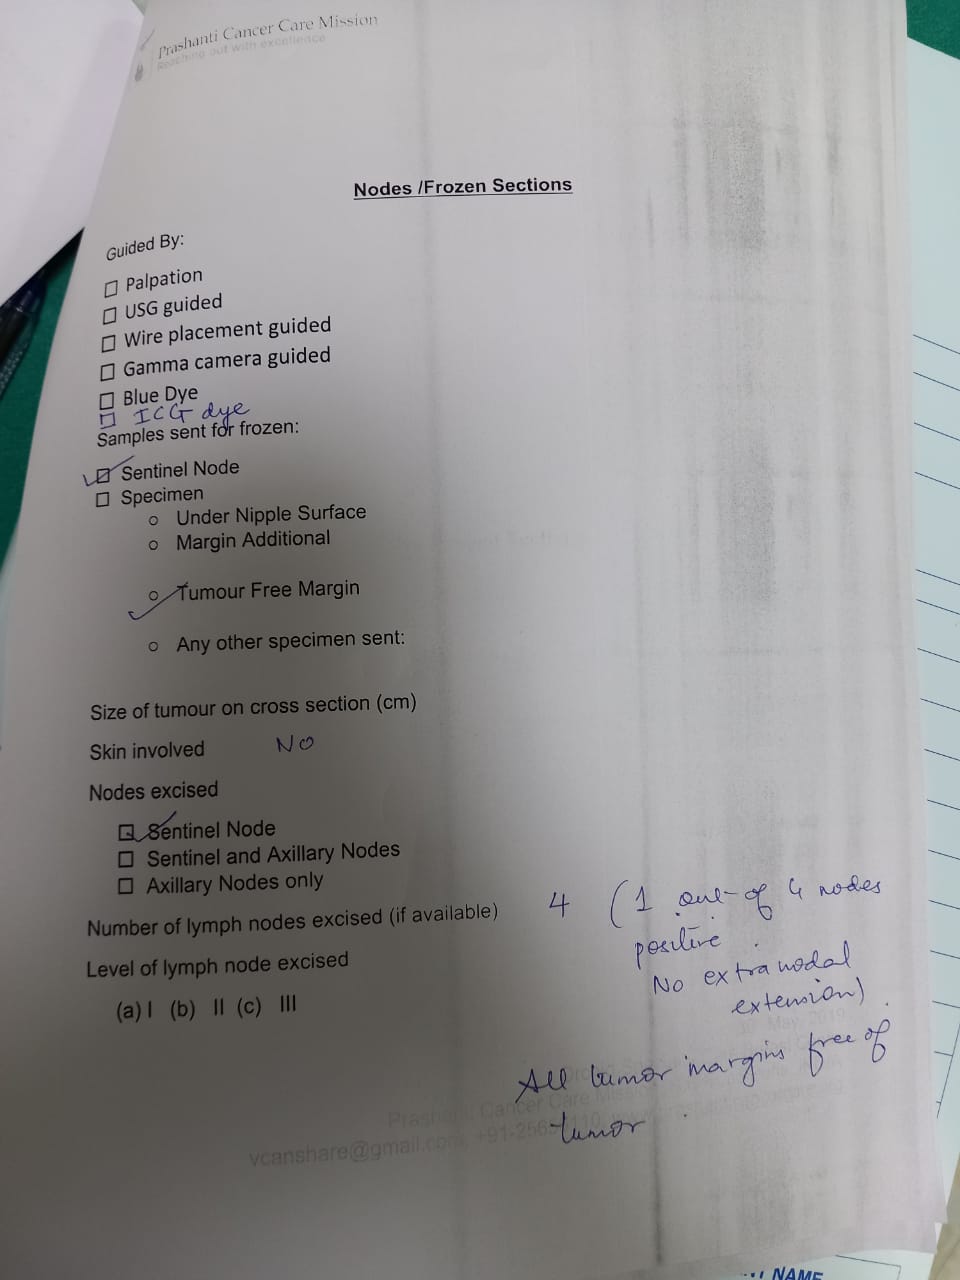 Prashanti Cancer Care Mission
Reaching out with excellence
Nodes /Frozen Sections
Guided By:
☐ Palpation
☐ USG guided
☐ Wire placement guided
☐ Gamma camera guided
☐ Blue Dye
☐ ICG dye
Samples sent for frozen:
☑ Sentinel Node
☐ Specimen
o Under Nipple Surface
o Margin Additional
o Tumour Free Margin
o Any other specimen sent:
Size of tumour on cross section (cm)
Skin involved NO
Nodes excised
☑ Sentinel Node
☐ Sentinel and Axillary Nodes
☐ Axillary Nodes only
Number of lymph nodes excised (if available) 4 (1 out of 4 nodes
positive.
No extranodal
extension).
Level of lymph node excised
(a) I (b) II (c) III
All tumor margins free of
tumor.
Prashanti Cancer Care
vcanshare@gmail.com, +91-
NAME